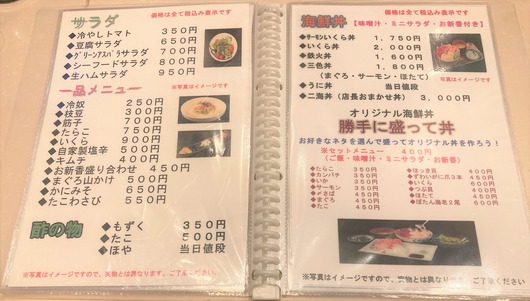 価格は全て税込み表示です
サラダ
◆冷やしトマト 350円
◆豆腐サラダ 500円
◆グリーンアスパラサラダ 700円
◆シーフードサラダ 800円
◆生ハムサラダ 950円
※写真はイメージです
一品メニュー
◆冷奴 250円
◆枝豆 300円
◆筋子 700円
◆たらこ 750円
◆いくら 900円
◆自家製塩辛 500円
◆キムチ 400円
◆お新香盛り合わせ 450円
◆まぐろ山かけ 500円
◆かにみそ 650円
◆たこわさび 550円
酢の物
◆もずく 350円
◆たこ 500円
◆ほや 当日値段
※写真はイメージですので、実物とは異なります。ご了承ください。
価格は全て税込み表示です
海鮮丼【味噌汁・ミニサラダ・お新香付き】
◆サーモンいくら丼 1,750円
◆いくら丼 2,000円
◆鉄火丼 1,600円
◆三色丼 1,800円
(まぐろ・サーモン・ほたて)
◆うに丼 当日値段
◆二海丼(店長おまかせ丼) 3,000円
※写真はイメージです
オリジナル海鮮丼
勝手に盛って丼
お好きなネタを選んで盛ってオリジナル丼を作ろう!
※セットメニュー 400円
(ご飯・味噌汁・ミニサラダ・お新香)
◆たらこ 350円
◆カンパチ 350円
◆いか 350円
◆サーモン 350円
◆〆さば 450円
◆まぐろ 450円
◆たこ 450円
◆ほっき貝 400円
◆ずわいがに爪3本 450円
◆いくら 450円
◆つぶ貝 400円
◆ほたて 450円
◆ぼたん海老2尾 600円
※写真はイメージですので、実物とは異なります。ご了承ください。